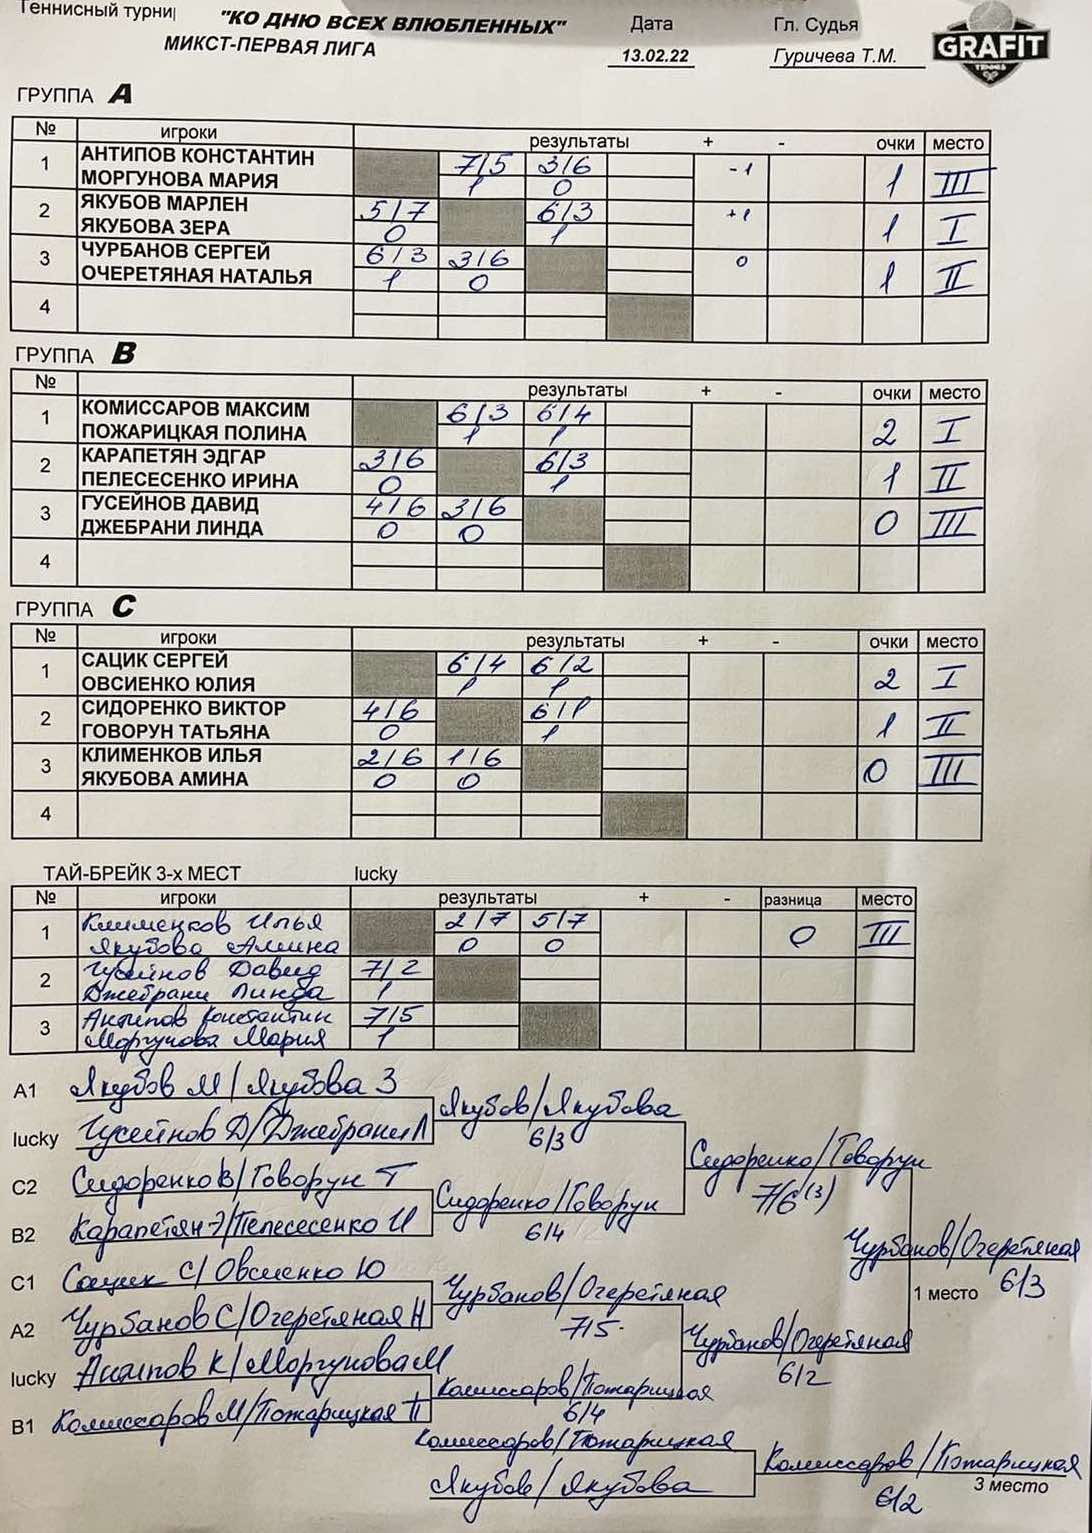 Теннисный турни
"КО ДНЮ ВСЕХ ВЛЮБЛЕННЫХ" Дата Гл. Судья
МИКСТ-ПЕРВАЯ ЛИГА 13.02.22 Гуричева Т.М.
GRAFIT
TENNIS
ГРУППА A
№ игроки результаты + - очки место
1 АНТИПОВ КОНСТАНТИН 7/5 3/6 -1
МОРГУНОВА МАРИЯ 1 0 1 III
2 ЯКУБОВ МАРЛЕН 5/7 6/3 +1
ЯКУБОВА ЗЕРА 0 1 1 I
3 ЧУРБАНОВ СЕРГЕЙ 6/3 3/6 0
ОЧЕРЕТЯНАЯ НАТАЛЬЯ 1 0 1 II
4
ГРУППА B
№ результаты + - очки место
1 КОМИССАРОВ МАКСИМ 6/3 6/4
ПОЖАРИЦКАЯ ПОЛИНА 1 1 2 I
2 КАРАПЕТЯН ЭДГАР 3/6 6/3
ПЕЛЕСЕСЕНКО ИРИНА 0 1 1 II
3 ГУСЕЙНОВ ДАВИД 4/6 3/6
ДЖЕБРАНИ ЛИНДА 0 0 0 III
4
ГРУППА C
№ игроки результаты + - очки место
1 САЦИК СЕРГЕЙ 6/4 6/2
ОВСИЕНКО ЮЛИЯ 1 1 2 I
2 СИДОРЕНКО ВИКТОР 4/6 6/1
ГОВОРУН ТАТЬЯНА 0 1 1 II
3 КЛИМЕНКОВ ИЛЬЯ 2/6 1/6
ЯКУБОВА АМИНА 0 0 0 III
4
ТАЙ-БРЕЙК 3-х МЕСТ lucky
№ игроки результаты + - разница место
1 Клименков Илья 2/7 5/7
Якубова Амина 0 0 0 III
2 Гусейнов Давид 7/2
Джебрани Линда 1
3 Антипов Константин 7/5
Моргунова Мария 1
A1 Якубов М/Якубова З
Якубов/Якубова
lucky Гусейнов Д/Джебрани Л
6/3
Сидоренко/Говорун
C2 Сидоренко В/Говорун Т
7/6(3)
Сидоренко/Говорун
B2 Карапетян Э/Пелесесенко И
6/4
Чурбанов/Очеретяная
C1 Сацик С/Овсиенко Ю
6/3
1 место
Чурбанов/Очеретяная
A2 Чурбанов С/Очеретяная Н
7/5
Чурбанов/Очеретяная
lucky Антипов К/Моргунова М
6/2
Комиссаров/Пожарицкая
B1 Комиссаров М/Пожарицкая П
6/4
Комиссаров/Пожарицкая
Комиссаров/Пожарицкая
Якубов/Якубова
3 место
6/2